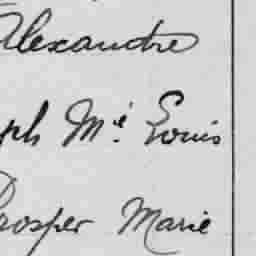 Alexandre
ph Mie Louis
Prosper Marie